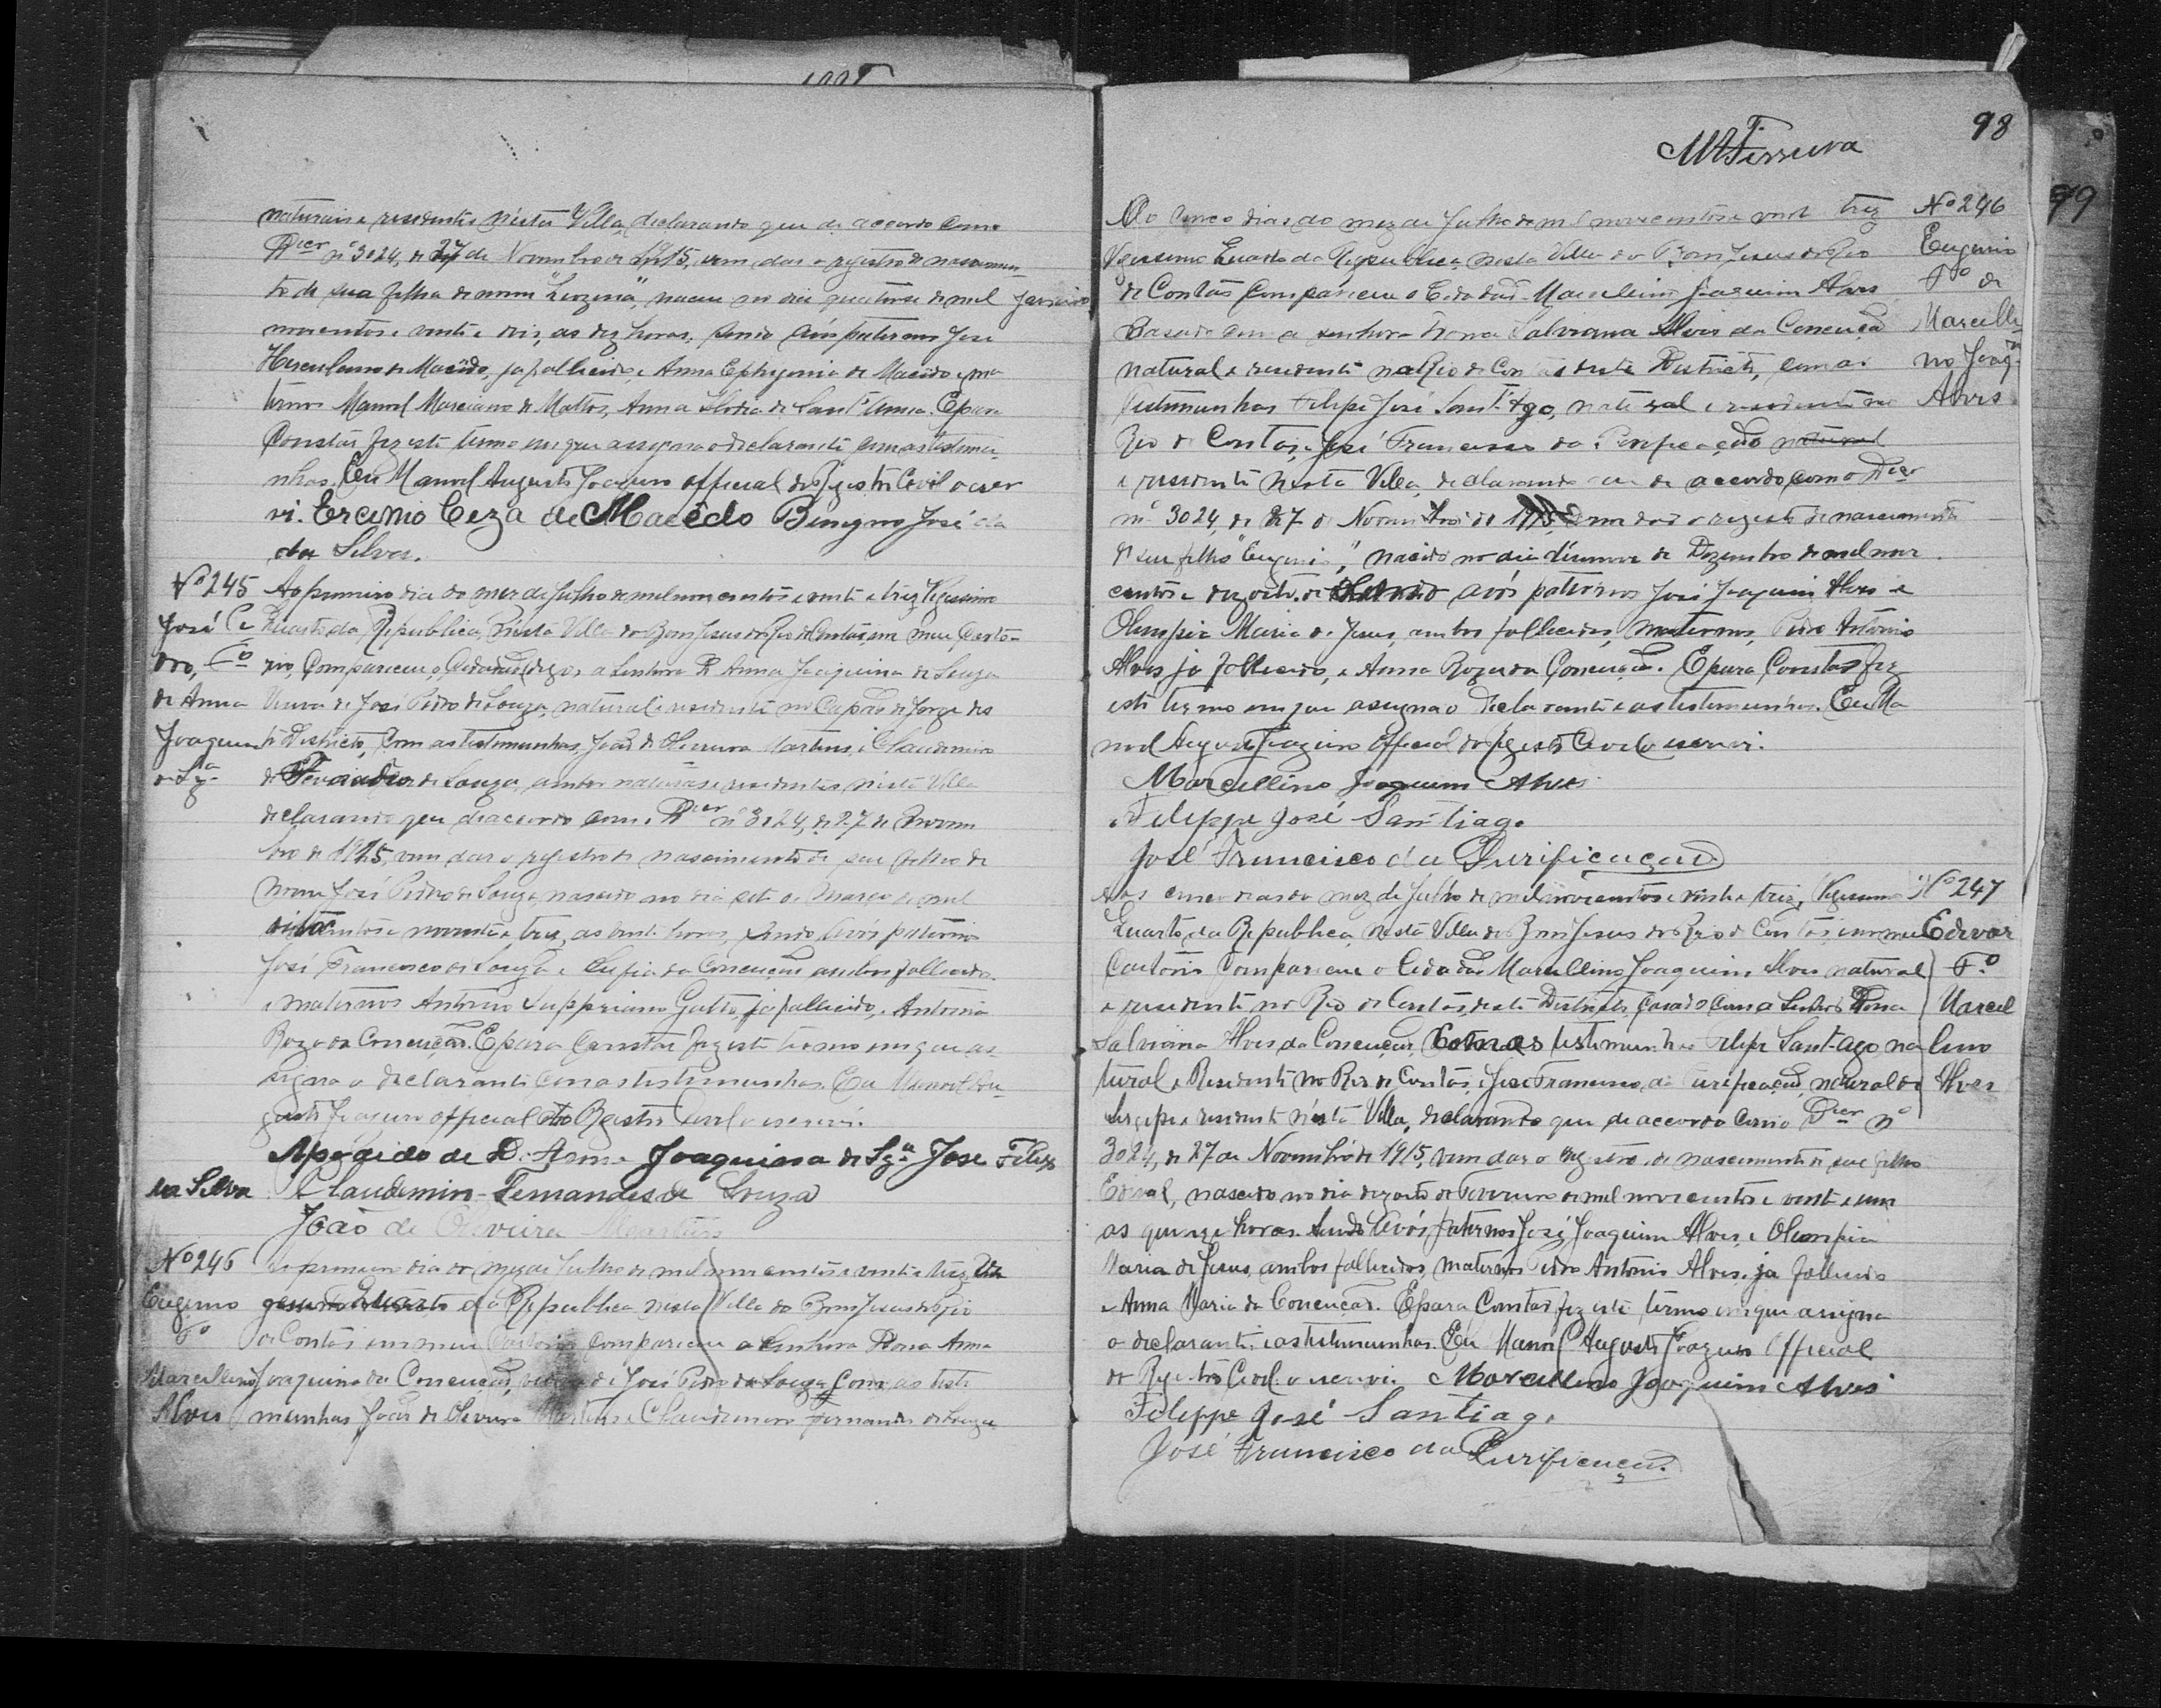 naturais e residentes nésta Villa, declarando que de accordo com o
Decr nº 3024, de 27 de Novembro de 1915, vem dar o registro de nascimen-
to de sua filha de nome "Leozena", nasceu no dia quatorse de Janeiro de mil
novecentos e vinte e dois, as dez horas; sendo Avós paternos José
Herculano de Macêdo, ja fallecido, e Anna Ephygenia de Macêdo e ma
ternos Manoel Marciano de Mattos, Anna de Sant'Anna. E para
Constár fiz este termo em que assigna o declarante com as testemu-
nhas. Eu Manoel Augusto Joaquim official do Registro Civil o escr
vi. Ercinio Ceza de Macêdo Benigno José da
da Silva.
Nº 245 Ao primeiro dia do mez de Julho de mil novecentos e vinte e trez Vigesimo
José Pe Quarto da Republica, Nésta Villa do Bom Jesus do Rio de Contas, em meu Carto-
dro, Fº rio, Compareceu o Cidadão digo a Senhora D Anna Joaquina de Souza
de Anna Viuva de José Pedro de Souza, natural e residente no Capão de Jorge des
Joaquina te Districto, Com as testemunhas João de Oliveira Martins e Claudemiro
de Sza de Souza, ambos naturais e residentes nésta Villa
declarando que de accordo com o Decr nº 3024, de 27 de Novem
bro de 1915, vem dar o registro de nascimento de seu filho de
nome José Pedro de Souza, nascido no dia sete de Março de mil
oitocentos e noventa e trez, as vinte horas, sendo Avós paternos
José Francisco de Souza e da Conceição ambos fallecidos.
e maternos Antonio Gatto, ja fallecido, e Antonia
Roza da Conceição. E para Constár fiz este termo em que as-
signa o declarante com as testemunhas. Eu Manoel Au-
gusto Joaquim official do Registro Civil o escrevi.
Apedido de D. Anna Joaquina de Sza José Felix
da Silva Claudemiro Fernandes de Souza
João de Oliveira Martins
Nº 246 Ao primeiro dia do mez de Julho de mil novecentos e vinte e trez, Vi
Eugenio gesimo Quarto da Republica nesta Villa do Bom Jesus do Rio
Fº de Contas em meu Cartorio compareceu a Senhora Dona Anna
Marcellino Joaquina da Conceição, viuva de José Pedro de Souza, Com as teste
Alves munhas João de Oliveira Martins e Claudemiro Fernandes de Souza
98
MAFerreira
99
Ao Cinco dias do mez de Julho de mil novecentos e vinte trez Nº 246
Vigesimo Quarto da Republica, nesta Villa do Bom Jesus do Rio Eugenio
de Contas Compareceu o Cidadão Marcellino Joaquim Alves Fº de
Casado com a senhora Dona Salviana Alves da Conceição Marcelli-
natural e residente no Rio de Contas deste Districto, com as no Joaqm
testemunhas Felipe José Sant'Ago, natural e residente no Alves
Rio de Contas, e José Francisco da Purificação natural
e residente nesta Villa, declarando que de accordo com o Decr
nº 3024, de 27 de Novembro de 1915, vem dar o registro de nascimento
de seu filho "Eugenio", nascido no dia desenove de Dezembro de mil nove
centos e dezoito, avós paternos José Joaquim Alves e
Olimpia Maria de Jesus, ambos fallecidos, maternos, Pedro Antônio
Alves ja fallecido, e Anna Roza da Conceição. E para Constar fiz
este termo em que assigna o declarante e as testemunhas. Eu Ma
noel Augusto Joaquim Official do Registro Civil o escrevi.
Marcellino Joaquim Alves
Felippe José Santiago
José Francisco da Purificação
Aos cinco dias do mez de Julho de mil novecentos e vinte e trez, Vigesimo Nº 247
Quarto da Republica, Nésta Villa do Bom Jesus do Rio de Contas, em meu Edivar
Cartório Compareceu o Cidadão Marcellino Joaquim Alves natural Fº
e residente no Rio de Contas, deste Districto, Casado com a Senhora Dona Marcel
Salviana Alves da Conceição, Com as testemunhas Felipe Sant-Ago na lino
tural e Residente no Rio de Contas, e José Francisco da Purificação, natural de Alves
Sergipe e residente nésta Villa, declarando que de accordo com o Decr nº
3024, de 27 de Novembro de 1915, vem dar o registro de nascimento de seu filho
nascido no dia dezoito de Fevereiro de mil novecentos e vinte e um
as quinze horas. Sendo Avós paternos José Joaquim Alves, e Olimpia
Maria de Jesus, ambos fallecidos, maternos Pedro Antônio Alves, ja fallecido
e Anna Maria da Conceição. E para Constar fiz este termo em que assigna
o declarante e as testemunhas. Eu Manoel Augusto Joaquim Official
do Registro Civil o escrevi. Marcellino Joaquim Alves
Felippe José Santiago
José Francisco da Purificação